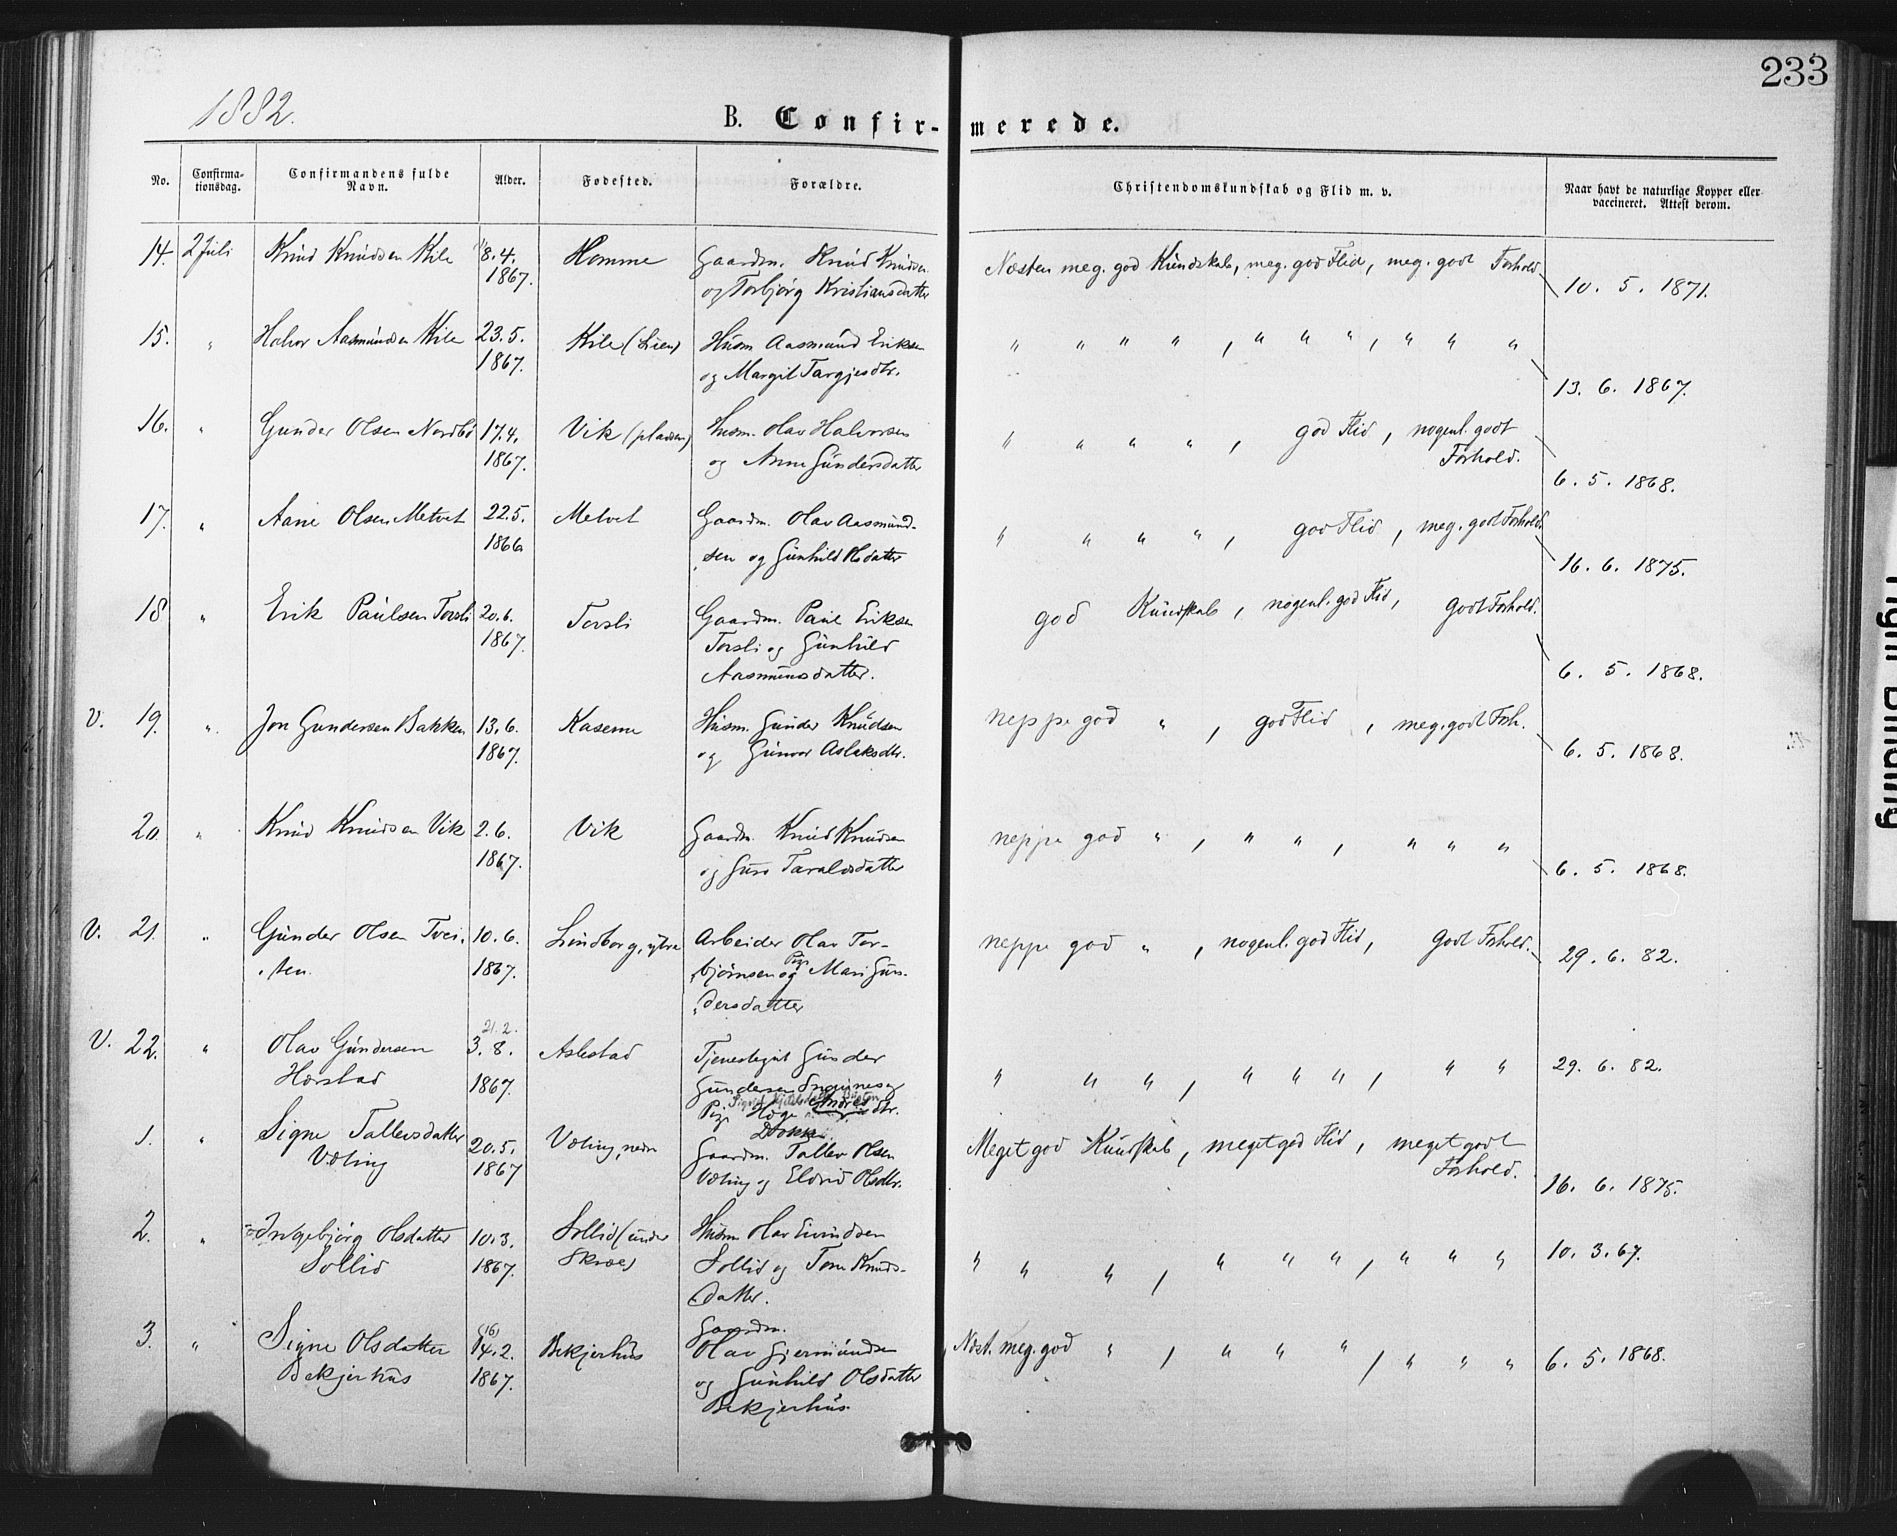 233
1882.
B. Confirmerede.
No. Confirmationsdag. Confirmandens fulde Navn. Alder. Fødested. Forældre. Christendomskundskab og Flid m. v. Naar havt de naturlige Kopper eller vaccineret. Attest derom.
14. 2 Juli Knud Knudsen Kile 8.4. Homme Gaardm. Knud Knudsen Næsten meg. god Kundskab, meg. god Flid, meg. godt Forhold
1867. og Torbjørg Kristiansdatter 10. 5. 1871.
15. " Halvor Aasmundsen Kile 23.5. Kile (Lien) Husm. Aasmund Eriksen " " " " , " " " , " " "
1867. og Margit Targjesdtr. 13. 6. 1867.
16. " Gunder Olsen Nordbø 17.4. Vik (pladsen) Husm. Olav Halvorsen " " " " , god Flid, nogenl. godt
1867. og Anne Gundersdatter Forhold. 6. 5. 1868.
17. " Aane Olsen Metvet 22.5. Metvet Gaardm. Olav Aasmund- " " " " , god Flid, meg. godt Forhold.
1866 sen og Gunhild Olsdatter 16. 6. 1875.
18 " Erik Paulsen Torsli 20.6. Torsli Gaardm. Paul Eriksen god Kundskab, nogenl. god Flid, godt Forhold.
1867. Torsli og Gunhild
Aasmundsdatter. 6. 5. 1868.
V. 19. " Jon Gundersen Bakken 13.6. Kasene Husm. Gunder Knudsen neppe god " , god Flid , meg. godt Forh.
1867. og Gunvor Aslaksdtr. 6. 5. 1868.
20. " Knud Knudsen Vik 2.6. Vik Gaardm. Knud Knudsen neppe god " , " " , " " "
1867. og Guro Taraldsdatter 6. 5. 1868.
V. 21. " Gunder Olsen Tvei- 10.6. Lindborg, ytre Arbeider Olav Tor- neppe god " , nogenl. god Flid, godt Forhold.
ten. 1867. bjørnsen og Pige Mari Gun- 29. 6. 82.
dersdatter
21.2.
V. 22. " Olav Gundersen 3.8. Aslestad Tjenestegut Gunder " " " , " " " , " " 29. 6. 82.
Hørstad 1867. Gundersen
Pige Høge dtr.
1. " Signe Tallevsdatter 20.5. Væting, nedre Gaardm. Tallev Olsen Meget god Kundskab, meget god Flid, meget godt
Væting 1867 Væting og Eldrid Olsdtr. Forhold. 16. 6. 1875.
2. " Ingebjørg Olsdatter 10.3. Sollid (under Husm. Olav Eivindsen " " " , " " " , " " " 10. 3. 67.
Sollid 1867. Skroe) Sollid og Tone Knuds-
datter.
Gaardm.
3. " Signe Olsdatter (16) 14.2. Bekjerhus Olav Gjermundsen Næst. meg. god " , " " " , " " " 6. 5. 1868.
Bekjerhus 1867. og Gunhild Olsdatter
Bekjerhus.